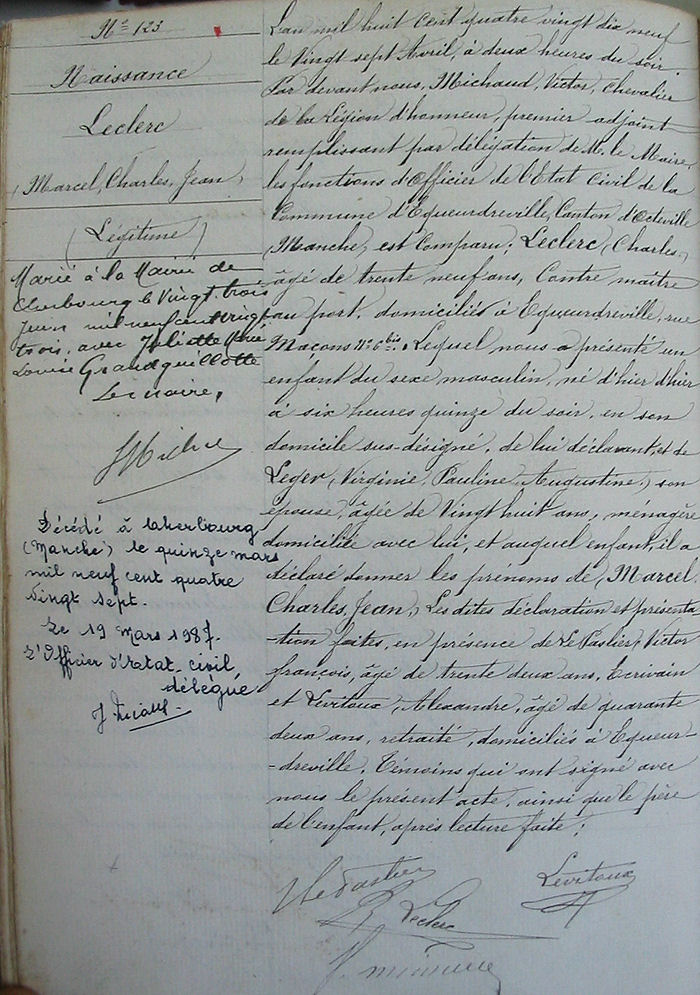 N° 123
Naissance
Leclerc
(Marcel, Charles, Jean)
(Légitime)
Marié à la Mairie de
Cherbourg le Vingt trois
Juin mil neuf cent vingt
trois, avec Juliette Marie
Louise Grandguillotte
Le maire,
Décédé à Cherbourg
(Manche) le quinze mars
mil neuf cent quatre
vingt sept.
Le 19 Mars 1987.
L'Officier d'état civil
délégué
L'an mil huit cent quatre vingt dix neuf
le Vingt sept Avril, à deux heures du soir
Par devant nous, Michaud, Victor, Chevalier
de la Légion d'honneur, premier adjoint
remplissant par délégation de M. le Maire,
les fonctions d'Officier de l'Etat Civil de la
Commune d'Equeurdreville, Canton d'Octeville
(Manche) est Comparu; Leclerc (Charles,)
âgé de trente neuf ans, Contre maître
au port, domicilié à Equeurdreville, rue
Maçons N° 6 bis. Lequel nous a présenté un
enfant du sexe masculin, né d'hier d'hier
à six heures quinze du soir, en son
domicile sus-désigné, de lui déclarant, et de
Leger (Virginie, Pauline, Augustine,) son
épouse, âgée de Vingt huit ans, ménagère
domiciliée avec lui, et auquel enfant, il a
déclaré donner les prénoms de (Marcel
Charles, Jean,) Les dites déclaration et présenta
-tion faites, en présence de Le Paslier, Victor
françois, âgé de trente deux ans, Ecrivain
et Levitoux, Alexandre, âgé de quarante
deux ans, retraité, domiciliés à Equeur-
-dreville. Témoins qui ont signé avec
nous le présent acte, ainsi que le père
de l'enfant, après lecture faite;
Le Paslier
Levitoux
Leclerc